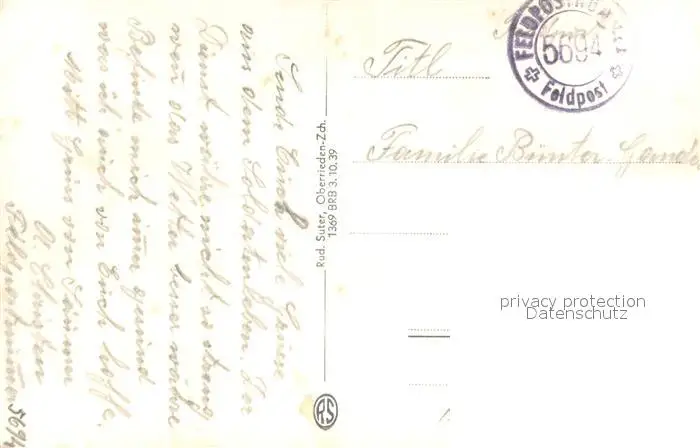 Sende Euch viele Grüsse
aus dem Soldatenleben. Der
Dienst wäre nicht so streng
wen das Wetter besser wäre
Befinde mich imer gesund
was ich auch von Euch hoffe.
Mitt Gruss von
Feldpostnumer 5694
Rud. Suter, Oberrieden-Zch.
1369 BRB 3.10.39
RS
FELDPOST
5694
Feldpost
Titl
Familie Bünter
privacy protection
Datenschutz